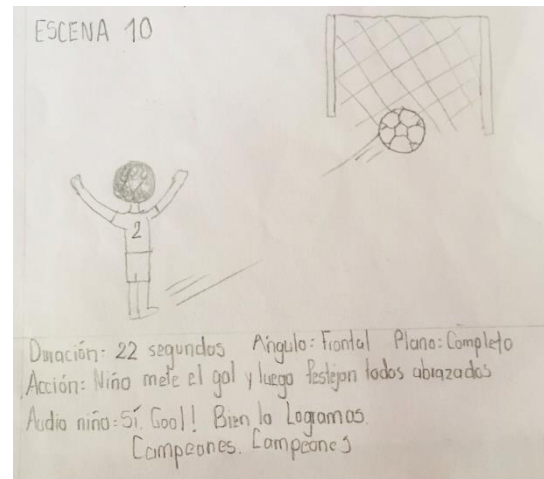 ESCENA 10
2
Duración: 22 segundos Ángulo: Frontal Plano: Completo
Acción: Niño mete el gol y luego festejan todos abrazados
Audio niño: Sí, Gool! Bien lo Logramos.
Campeones. Campeones